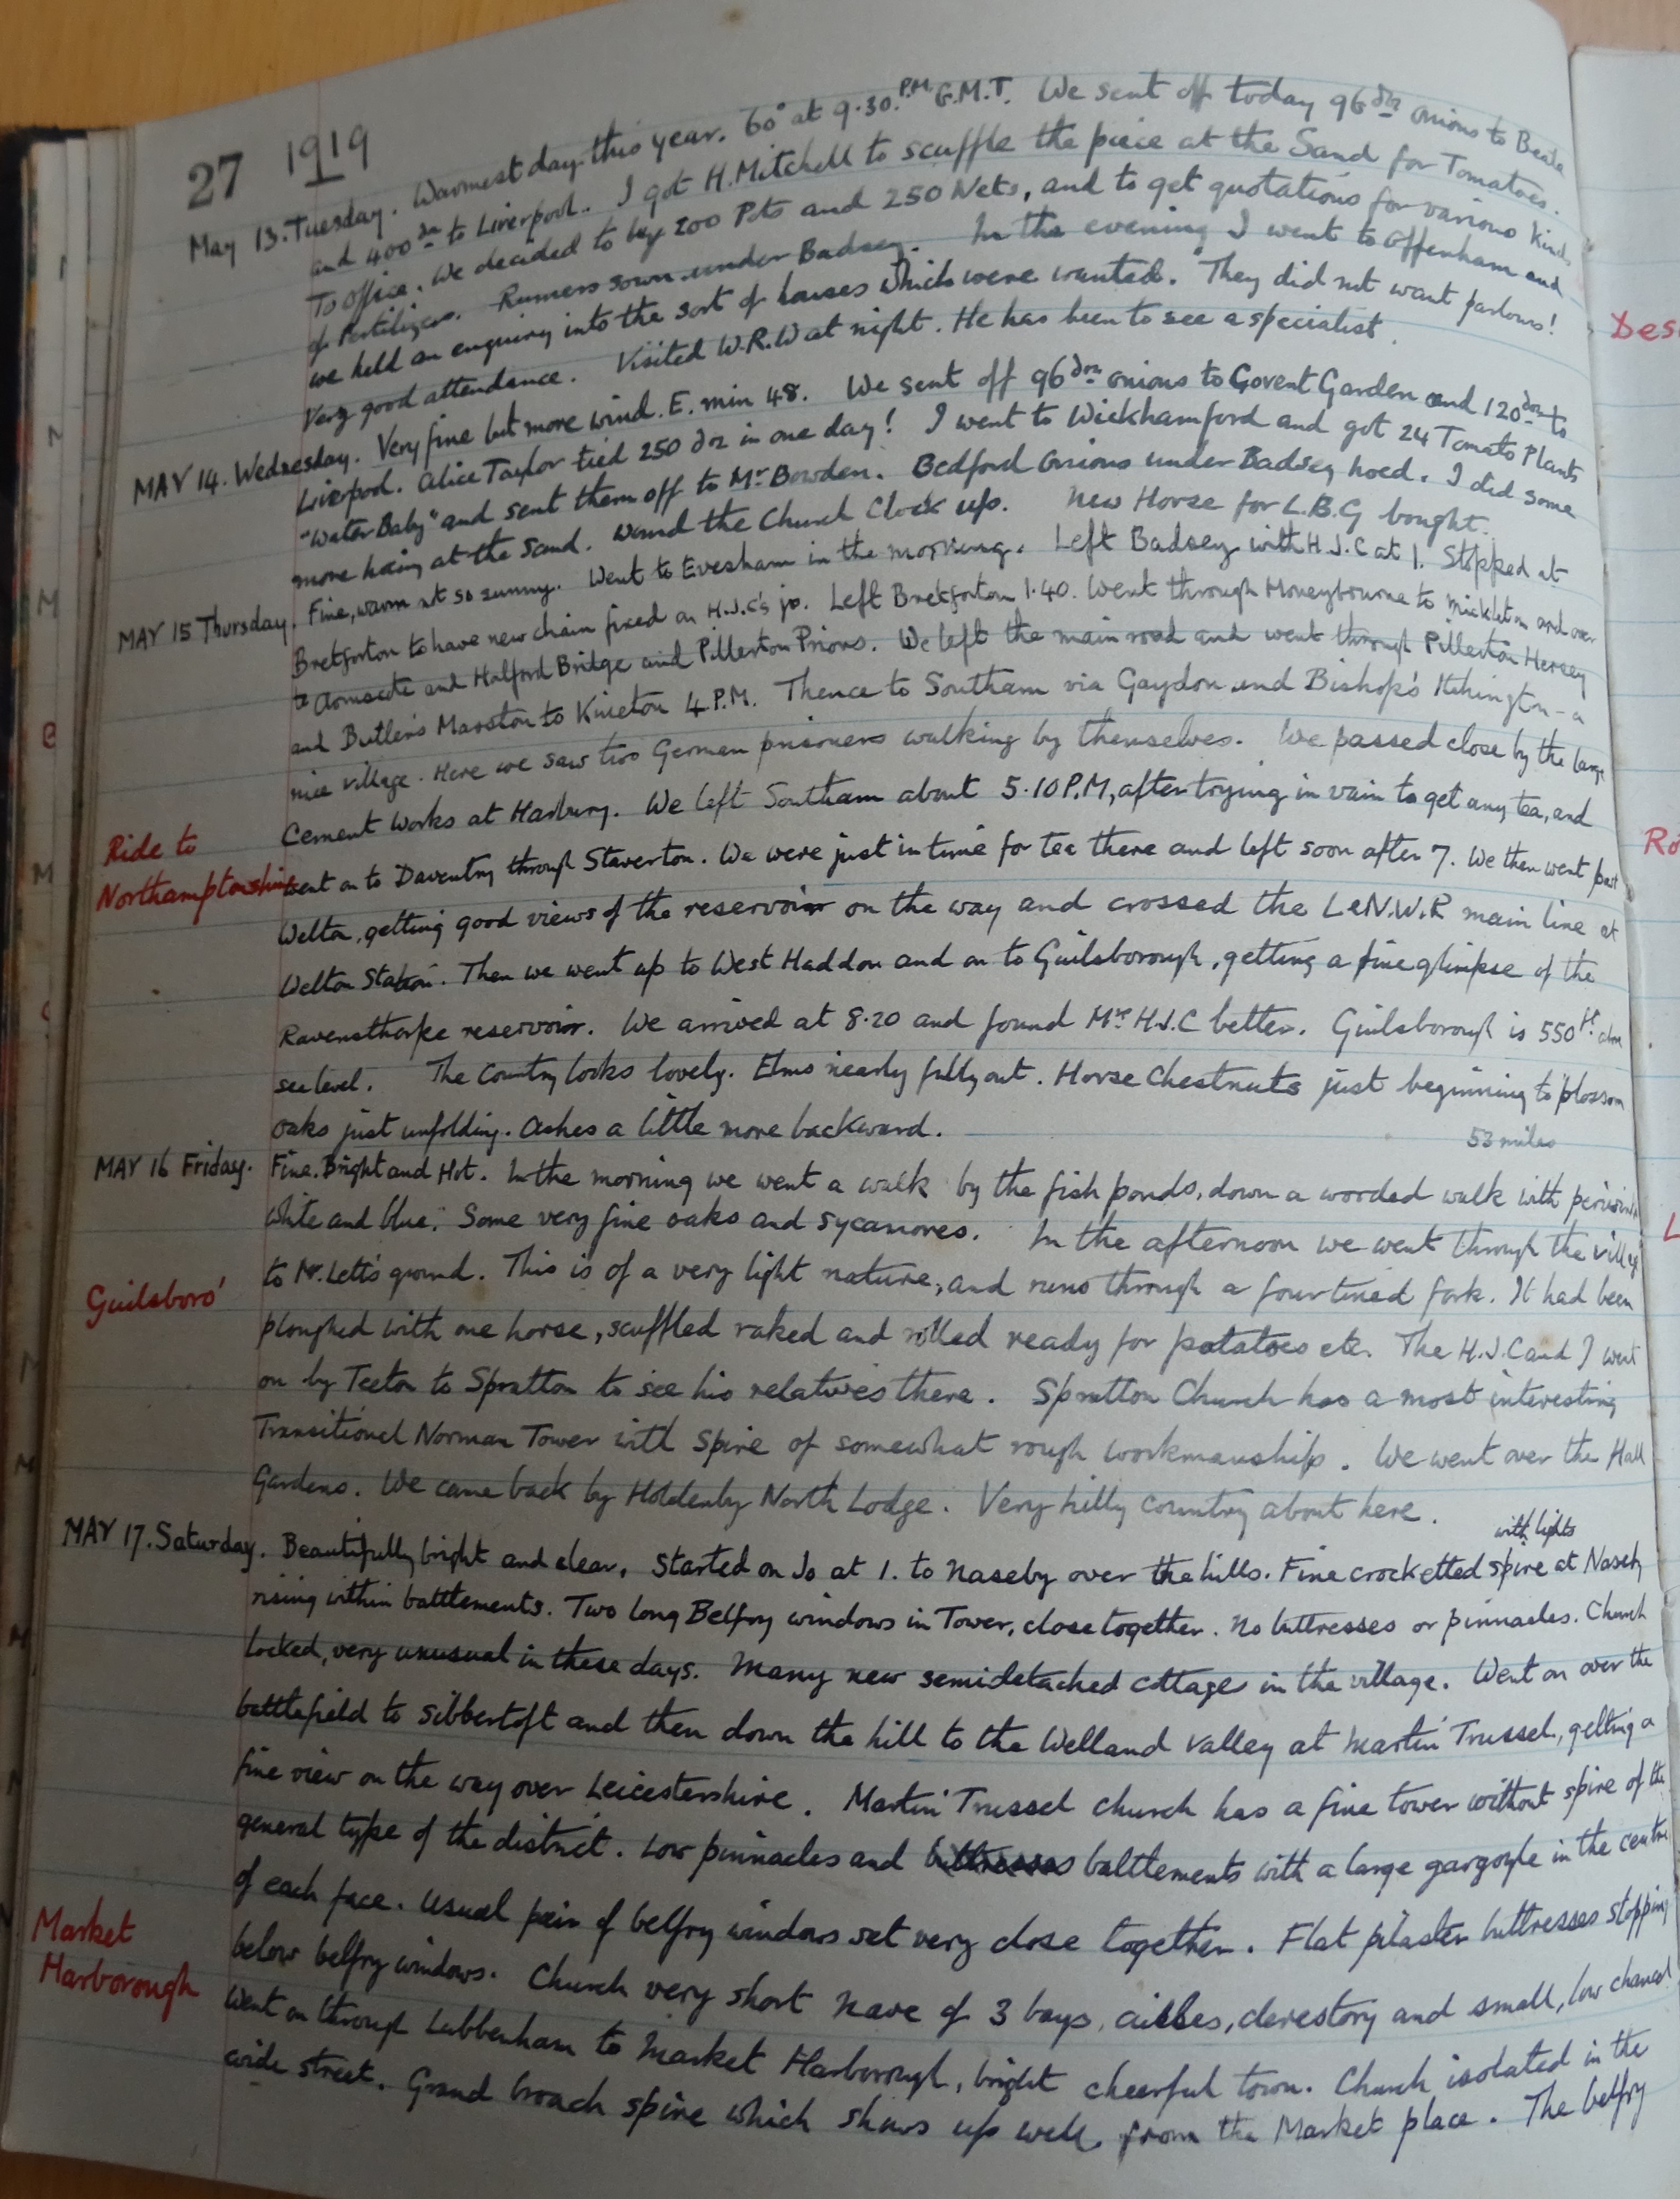 27 1919
May 13. Tuesday. Warmest day this year. 60° at 9.30. P.M. G.M.T. We sent off today 96 doz onions to Beale
and 400 doz to Liverpool. I got H. Mitchell to scuffle the piece at the Sand for Tomatoes.
To office. We decided to buy 200 Pots and 250 Nets, and to get quotations for various kinds
of Fertilizers. Runners sown under Badsey. In the evening I went to Offenham and
we held an enquiry into the sort of houses which were wanted. "They did not want parlours!
Very good attendance. Visited W.R.W at night. He has been to see a specialist.
MAY 14. Wednesday. Very fine but more wind. E. min 48. We sent off 96 doz onions to Covent Garden and 120 doz to
Liverpool. Alice Taylor tied 250 doz in one day! I went to Wickhamford and got 24 Tomato Plants
"Water Baby" and sent them off to Mr Bowden. Bedford Onions under Badsey hoed. I did some
more hoeing at the Sand. Wound the Church Clock up. New Horse for L.B.G bought.
MAY 15 Thursday. Fine, warm nt so sunny. Went to Evesham in the morning. Left Badsey with H.J.C at 1. Stopped at
Bretforton to have new chain fixed on H.J.C's jo. Left Bretforton 1.40. Went through Honeybourne to Mickleton and over
to Armscote and Halford Bridge and Pillerton Priors. We left the main road and went through Pillerton Hersey
and Butlers Marston to Kineton 4 P.M. Thence to Southam via Gaydon and Bishop's Itchington - a
nice village. Here we saw two German prisoners walking by themselves. We passed close by the large
Cement Works at Harbury. We left Southam about 5.10 P.M, after trying in vain to get any tea, and
Ride to
Northamptonshire
went on to Daventry through Staverton. We were just in time for tea there and left soon after 7. We then went past
Welton, getting good views of the reservoir on the way and crossed the L&N.W.R main line at
Welton Station. Then we went up to West Haddon and on to Guilsborough, getting a fine glimpse of the
Ravensthorpe reservoir. We arrived at 8.20 and found Mrs H.J.C better. Guilsborough is 550 ft. above
sea level. The Country looks lovely. Elms nearly fully out. Horse Chestnuts just beginning to blossom
oaks just unfolding. Ashes a little more backward. 53 miles
MAY 16 Friday. Fine. Bright and Hot. In the morning we went a walk by the fish ponds, down a wooded walk with periwinkle
white and blue. Some very fine oaks and sycamores. In the afternoon we went through the village
Guilsboro'
to Mr. Lett's ground. This is of a very light nature, and runs through a four tined fork. It had been
ploughed with one horse, scuffled raked and rolled ready for potatoes etc. The H.J.C and I went
on by Teeton to Spratton to see his relatives there. Spratton Church has a most interesting
Transitional Norman Tower with spire of somewhat rough workmanship. We went over the Hall
Gardens. We came back by Holdenby North Lodge. Very hilly country about here.
MAY 17. Saturday. Beautifully bright and clear. Started on Jo at 1. to Naseby over the hills. Fine crocketted spire with lights at Naseby
rising within battlements. Two long Belfry windows in Tower, close together. No buttresses or pinnacles. Church
locked, very unusual in these days. Many new semidetached cottages in the village. Went on over the
battlefield to Sibbertoft and then down the hill to the Welland valley at Martin Trussel, getting a
fine view on the way over Leicestershire. Martin Trussel church has a fine tower without spire of the
general type of the district. Low pinnacles and buttresses battlements with a large gargoyle in the centre
of each face. Usual pair of belfry windows set very close together. Flat pilaster buttresses stopping
Market
Harborough
below belfry windows. Church very short nave of 3 bays, aisles, clerestory and small, low chancel
Went on through Lubbenham to Market Harborough, bright cheerful town. Church isolated in the
wide street. Grand broach spire which shows up well from the Market place. The belfry